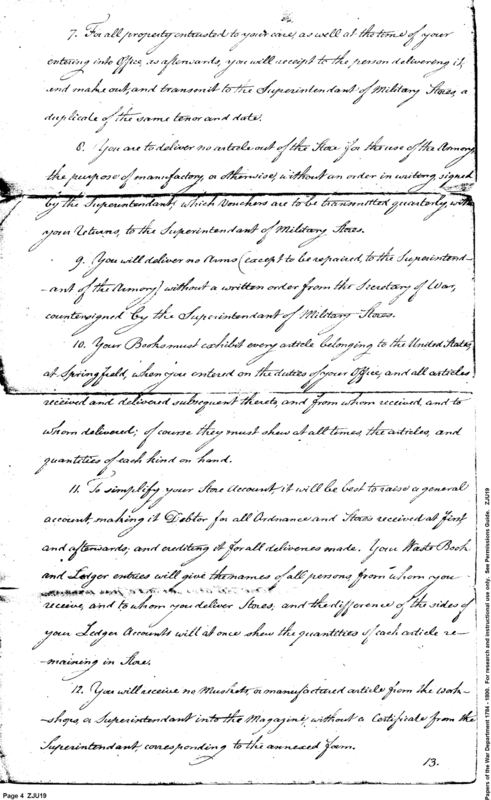 7. For all property entrusted to your care, as well at the time of your
entering into Office, as afterwards, you will receipt to the person delivering it,
and make out, and transmit to the Superintendant of Military Stores, a
duplicate of the same tenor and date.
8. You are to deliver no article out of the Store (for the use of the Armory,
the purpose of manufactory, or otherwise) without an order in writing, signed
by the Superintendant, which Vouchers are to be transmitted quarterly, with
your returns, to the Superintendant of Military Stores.
9. You will deliver no Arms (except to be repaired, to the Superintend-
-ant of the Armory) without a written order from the Secretary of War,
countersigned by the Superintendant of Military Stores.
10. Your Books must exhibit every article belonging to the United States,
at Springfield, when you entered on the duties of your Office, and all articles
received and delivered subsequent thereto, and from whom received, and to
whom delivered; of course they must shew at all times, the articles, and
quantities of each kind on hand.
11. To simplify your Store Account, it will be best to raise a general
account, making it Debtor for all Ordnance and Stores received at first
and afterwards, and crediting it for all deliveries made. Your Waste Book
and Ledger entries will give the names of all persons, from whom you
receive, and to whom you deliver Stores, and the difference of the sides of
your Ledger Accounts will at once shew the quantities of each article re-
-maining in Store.
12. You will receive no Muskets, or manufactured article from the work-
-shops, or Superintendant into the Magazine, without a Certificate from the
Superintendant, corresponding to the annexed form.
13.
Page 4 ZJU19
Papers of the War Department 1784 - 1800. For research and instructional use only. See Permissions Guide. ZJU19